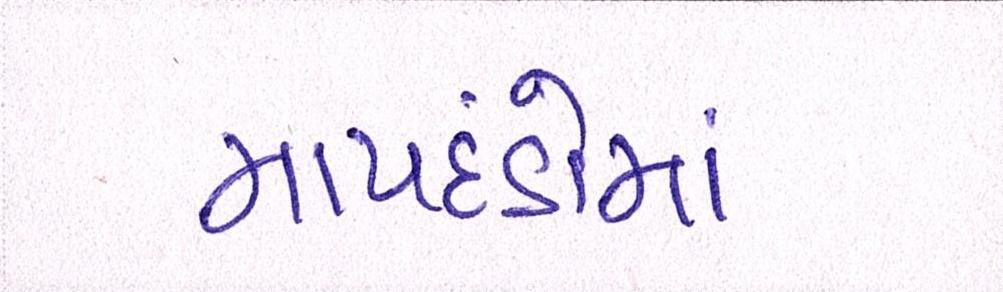 માપદંડોમાં